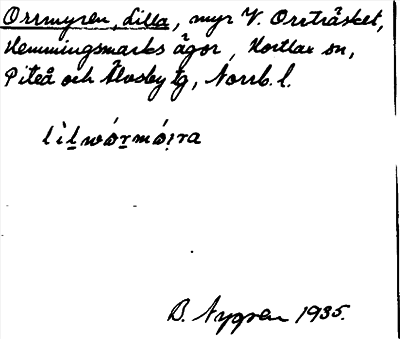 Orrmyren, Lilla, myr V. Orrträsket,
Hemmingsmarks ägor, Hortlax sn,
Piteå och Älvsby tg, Norrb. l.
lìlwórmóɪra
B. Nygren 1935.